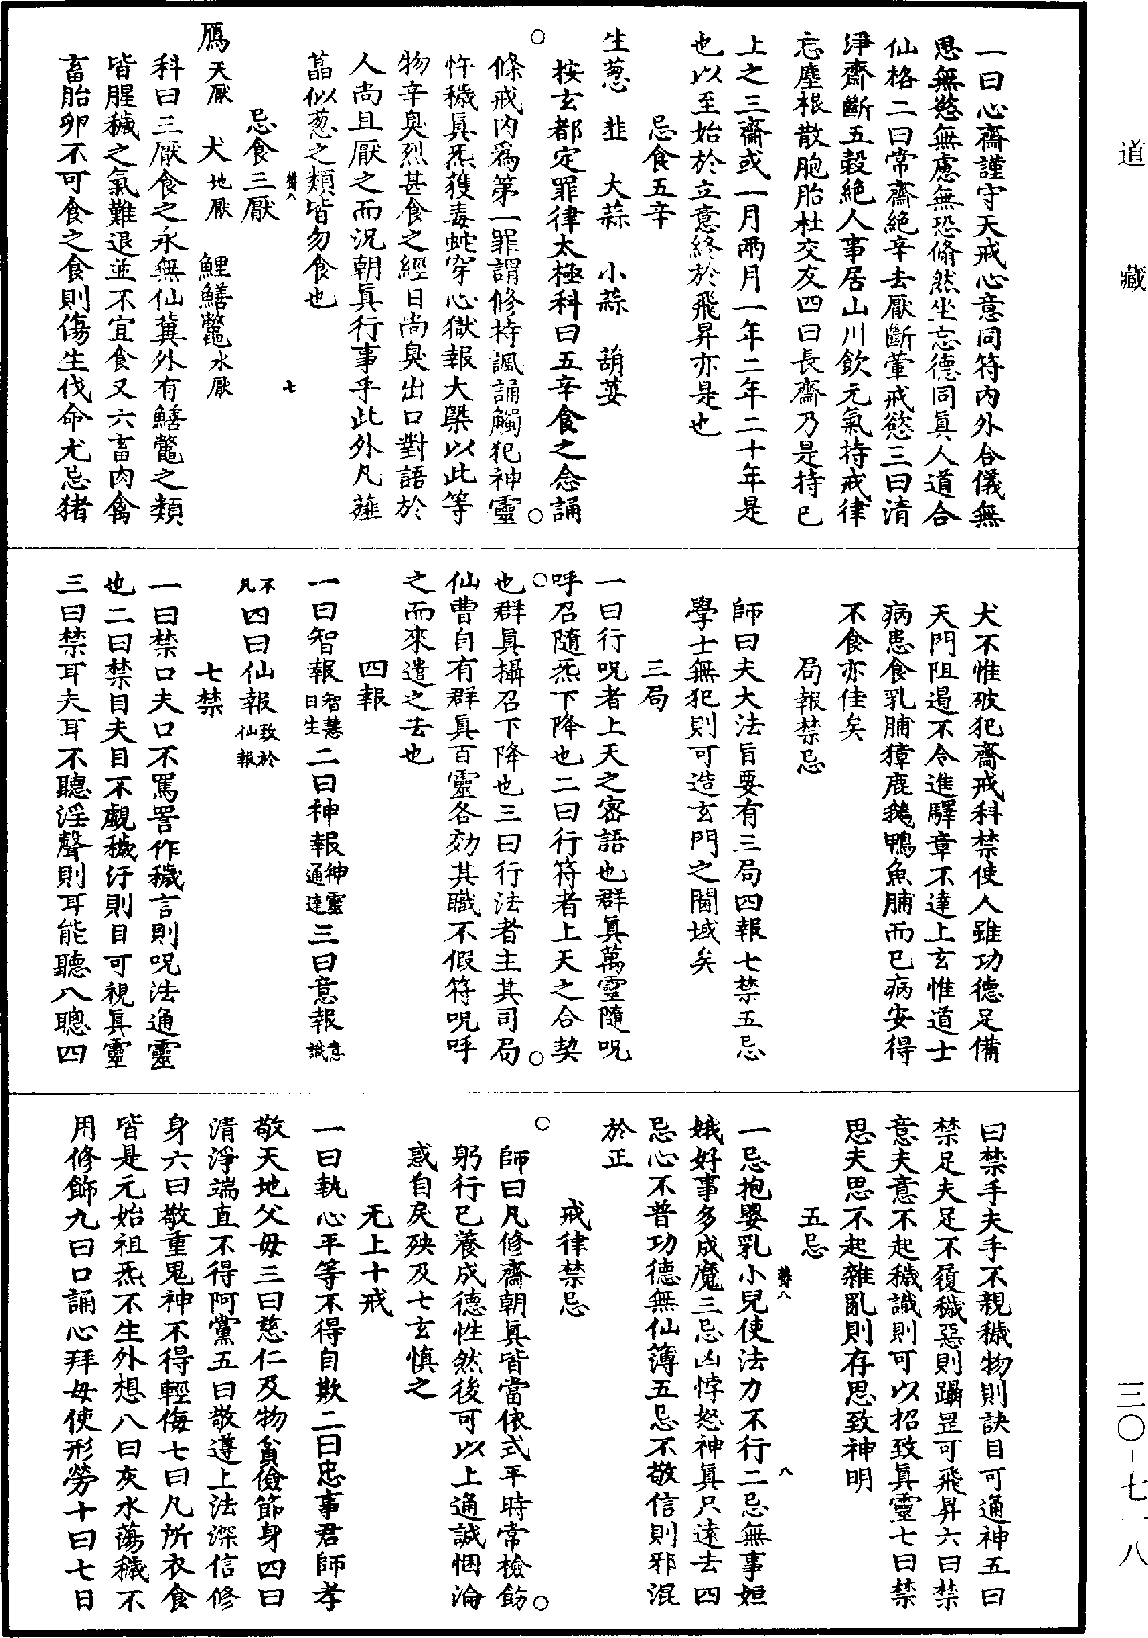 道藏
一曰心齋謹守天戒心意同符內外合儀無
思無慾無慮無恐翛然坐忘德同真人道合
仙格二曰常齋絕辛去厭斷葷戒慾三曰清
淨齋斷五穀絕人事居山川飲元氣持戒律
忘塵根散胞胎杜交友四曰長齋乃是持已
上之三齋或一月兩月一年二年二十年是
也以至始於立意終於飛昇亦是也
忌食五辛
生葱 韭 大蒜 小蒜 葫荽
按玄都定罪律太極科曰五辛食之念誦
條戒內爲第一罪謂修持諷誦觸犯神靈
忤穢真炁獲毒蛇穿心獄報大槩以此等
物辛臭烈甚食之經日尚臭出口對語於
人尚且厭之而況朝真行事乎此外凡薤
藠似葱之類皆勿食也
七
忌食三厭
鴈天厭 犬地厭 鯉鱔鼈水厭
科曰三厭食之永無仙冀外有鱔鼈之類
皆腥穢之氣難退並不宜食又六畜肉禽
畜胎卵不可食之食則傷生伐命尤忌猪
犬不惟破犯齋戒科禁使人雖功德足備
天門阻遏不令進驛章不達上玄惟道士
病患食乳脯獐鹿鵝鴨魚脯而已病安得
不食亦佳矣
局報禁忌
師曰夫大法旨要有三局四報七禁五忌
學士無犯則可造玄門之閫域矣
三局
一曰行呪者上天之密語也群真萬靈隨呪
呼召隨炁下降也二曰行符者上天之合契
也群真攝召下降也三曰行法者主其司局
仙曹自有群真百靈各効其職不假符呪呼
之而來遣之去也
四報
一曰智報智慧日生二曰神報神靈通達三曰意報意識
不凡四曰仙報致於仙報
七禁
一曰禁口夫口不罵詈作穢言則呪法通靈
也二曰禁目夫目不覷穢汙則目可視真靈
三曰禁耳夫耳不聽淫聲則耳能聽八聰四
曰禁手夫手不親穢物則訣目可通神五曰
禁足夫足不履穢惡則躡罡可飛昇六曰禁
意夫意不起穢識則可以招致真靈七曰禁
思夫思不起雜亂則存思致神明
五忌
一忌抱嬰乳小兒使法力不行二忌無事姮
娥好事多成魔三忌凶悖怒神真只遠去四
忌心不普功德無仙簿五忌不敬信則邪混
於正
八
戒律禁忌
師曰凡修齋朝真皆當依式平時常檢飭
躬行已養成德性然後可以上通誠悃淪
惑自戾殃及七玄慎之
无上十戒
一曰執心平等不得自欺二曰忠事君師孝
敬天地父母三曰慈仁及物貧儉節身四曰
清淨端直不得阿黨五曰敬遵上法深信修
身六曰敬重鬼神不得輕侮七曰凡所衣食
皆是元始祖炁不生外想八曰灰水蕩穢不
用修飾九曰口誦心拜毋使形勞十曰七日
三〇-七一八